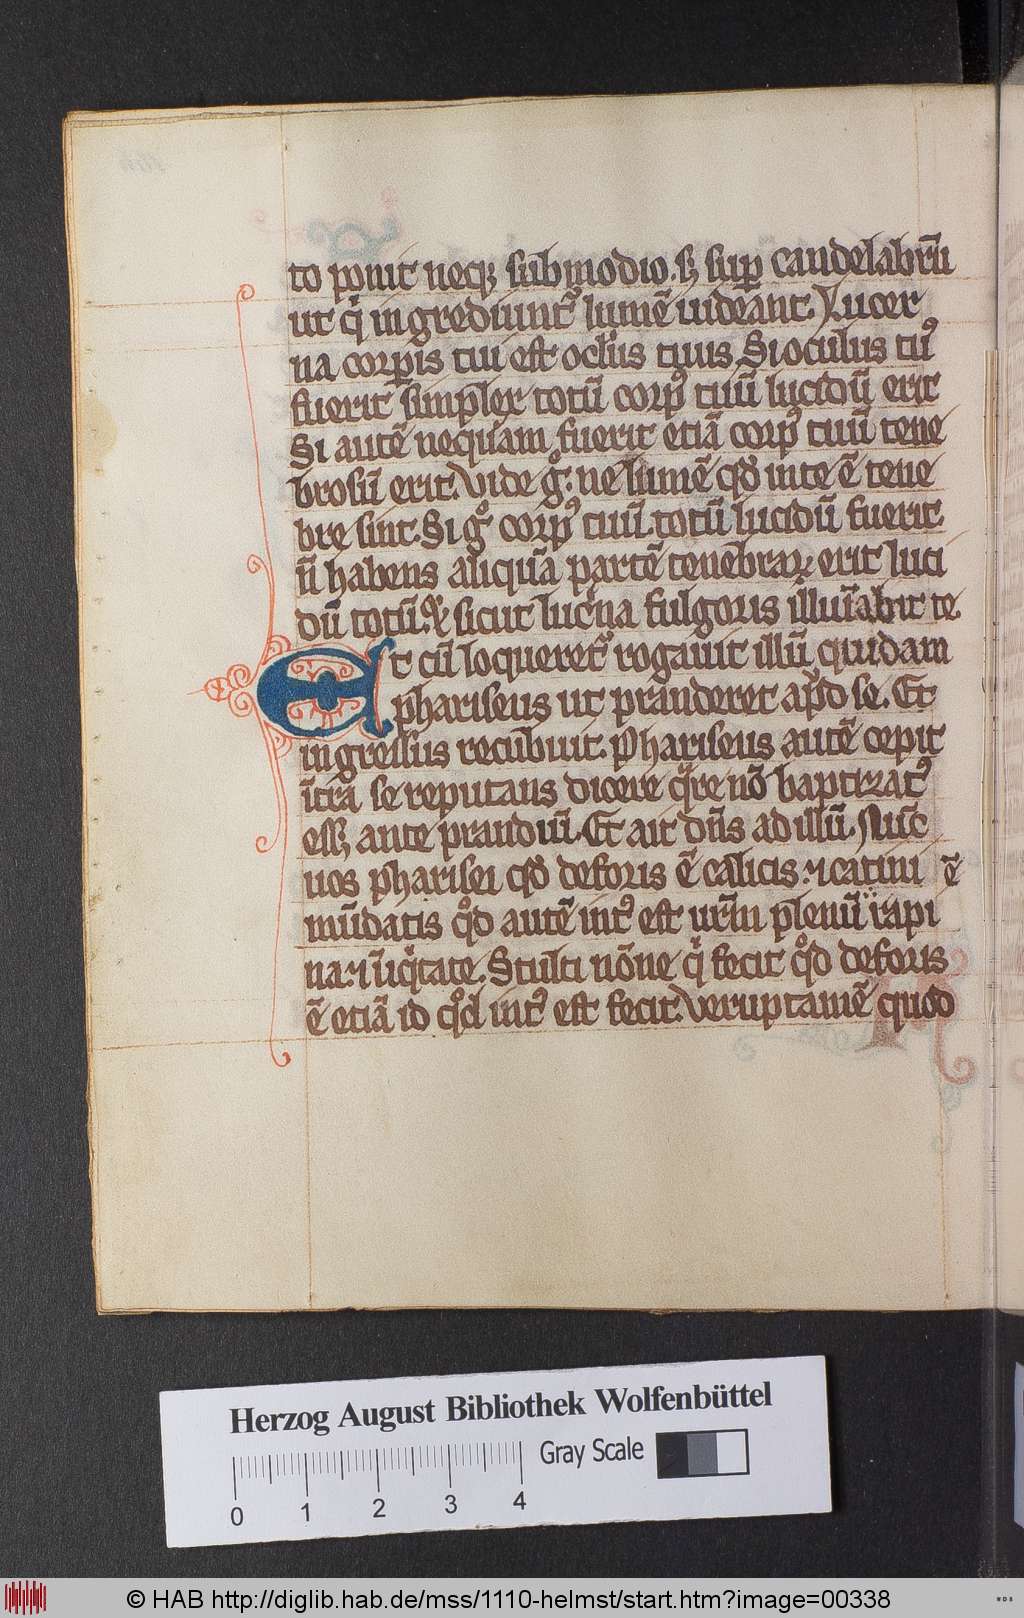 to ponit neqꝫ sub modio. sꝫ suꝑ candelabrū
ut qͥ ingrediuntᷣ lumē uideant. Lucer
na corꝑis tui est oclūs tuus Si oculus tuꝰ
fuerit simplex totū corpꝰ tuū lucidū erit
Si autē nequam fuerit etiā corpꝰ tuū tene
brosū erit. Vide gͦ. ne lumē qd̄ in te ē tene
bre sint. Si gͦ corpꝰ tuū totū lucidū fuerit.
n̄ habens aliquā partē tenebraꝝ erit luci
dū totū. ⁊ sicut luc̄na fulgoris illuīabit te.
Et cū loqueretᷣ rogauit illū quidam
phariseus ut pranderet apd̄ se. Et
ingressus recūbuit. Phariseus autē cepit
īt̄ra se reputans dicere qͣre nō baptizatꝰ
essꝫ ante prandiū. Et ait dn̄s ad illū. Nūc
uos pharisei qd̄ deforis ē calicis ⁊ catini ē
mūdatis qͦd autē intꝰ est ur̄m plenū rapi
na ⁊ īiqͥtate. Stulti nōne qͥ fecit qͦd deforis
ē etiā id qͦd intꝰ est fecit. Veruptamē quod
Herzog August Bibliothek Wolfenbüttel
Gray Scale
0 1 2 3 4
© HAB http://diglib.hab.de/mss/1110-helmst/start.htm?image=00338